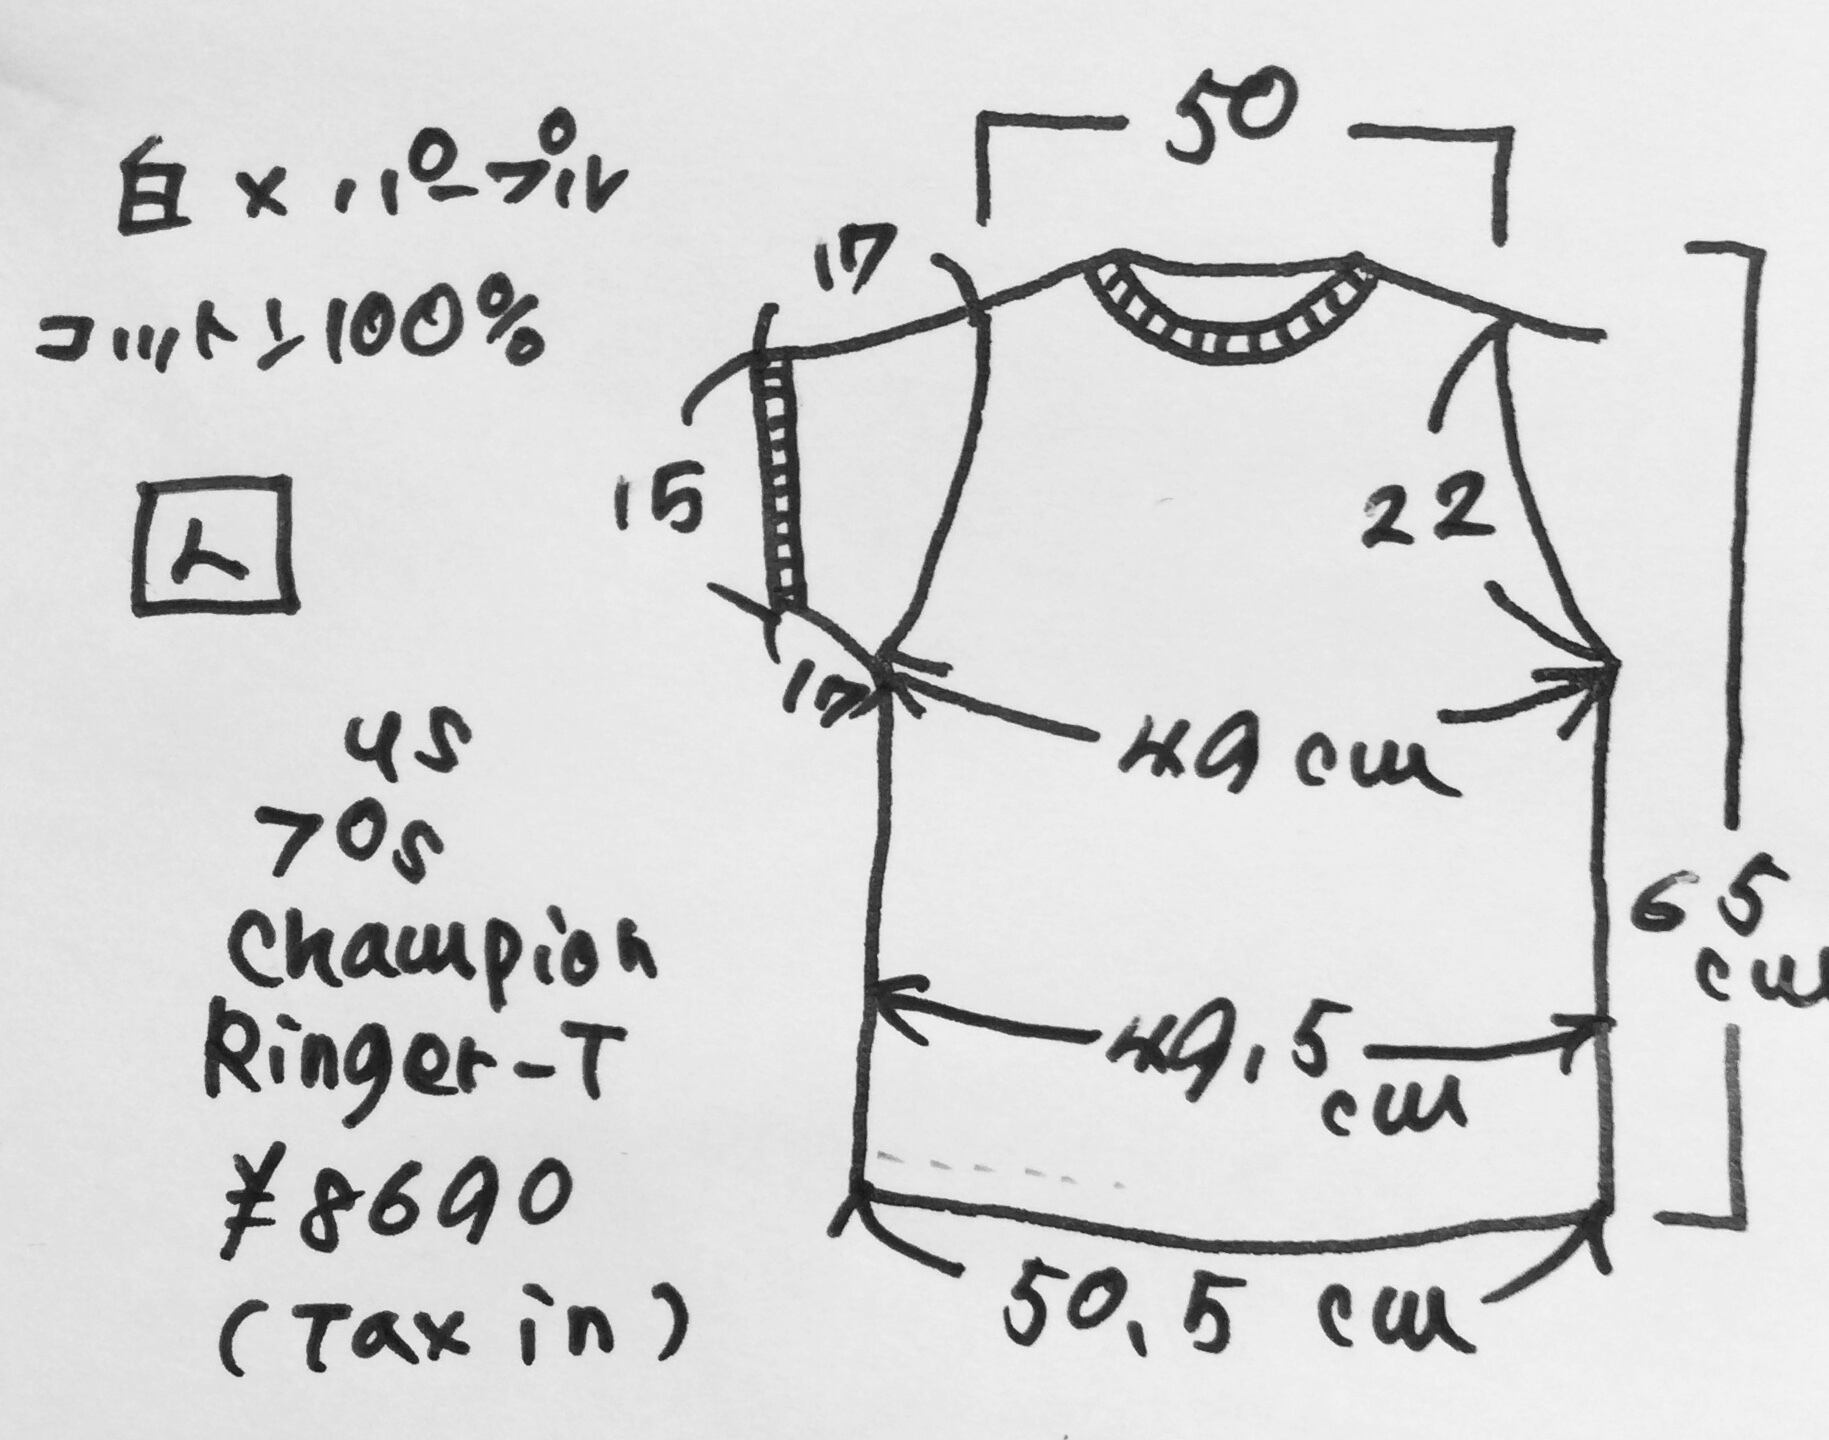 白×パープル
コットン100%
L
US
70s
Champion
Ringer-T
¥8690
(Tax in)
50
17
15
22
17
49cm
65
cm
49,5
cm
50,5 cm